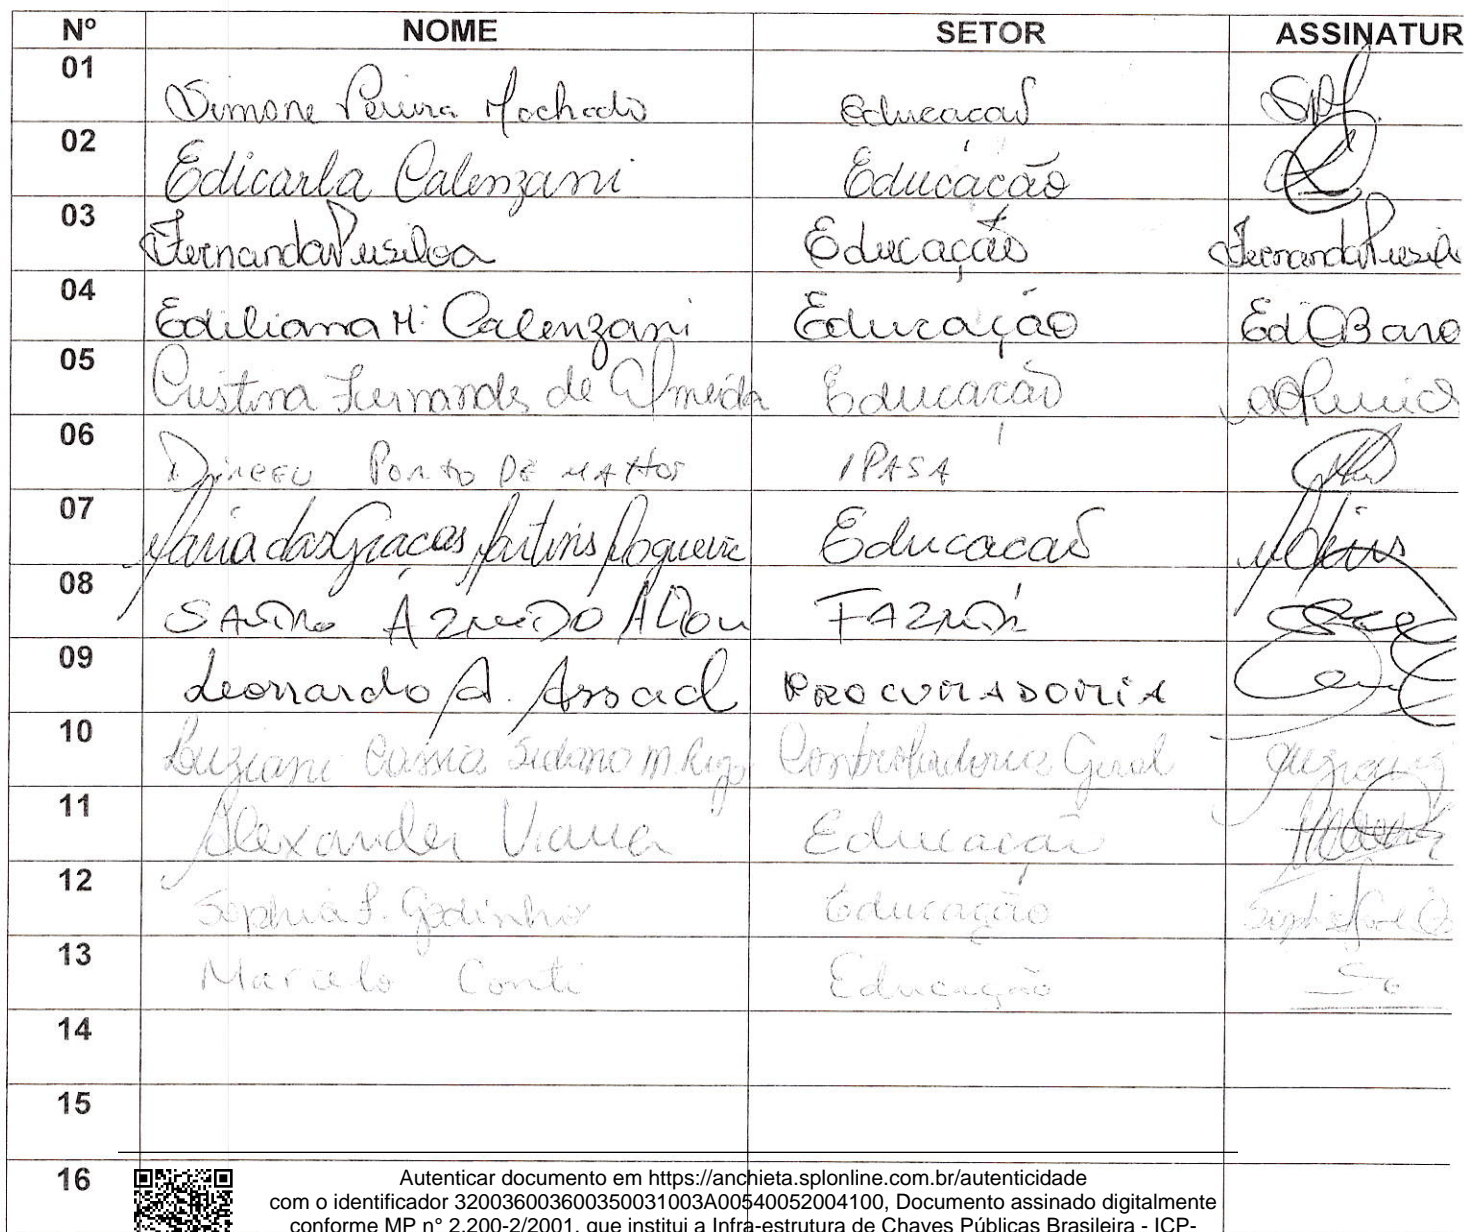 Nº NOME SETOR ASSINATUR
01 Simone Pereira Machado Educacaõ
02 Edicarla Calenzani Educação
03 Fernanda Educação Fernanda
04 Ediliana M. Calenzani Educação
05 Cristina Fernandes de Almeida Educação
06 Dirceu Porto DE MATTOS IPASA
07 Maria das Graças Martins Nogueira Educacaõ
08
09 Leonardo A. Assad PROCURADORIA
10 Luziani Cassia M. Controladoria Geral
11 Alexander Viana Educação
12 Sophia Godinho Educação
13 Marcelo Conti Educação
14
15
16
Autenticar documento em https://anchieta.splonline.com.br/autenticidade
com o identificador 320036003600350031003A00540052004100, Documento assinado digitalmente
conforme MP n° 2.200-2/2001, que institui a Infra-estrutura de Chaves Públicas Brasileira - ICP-